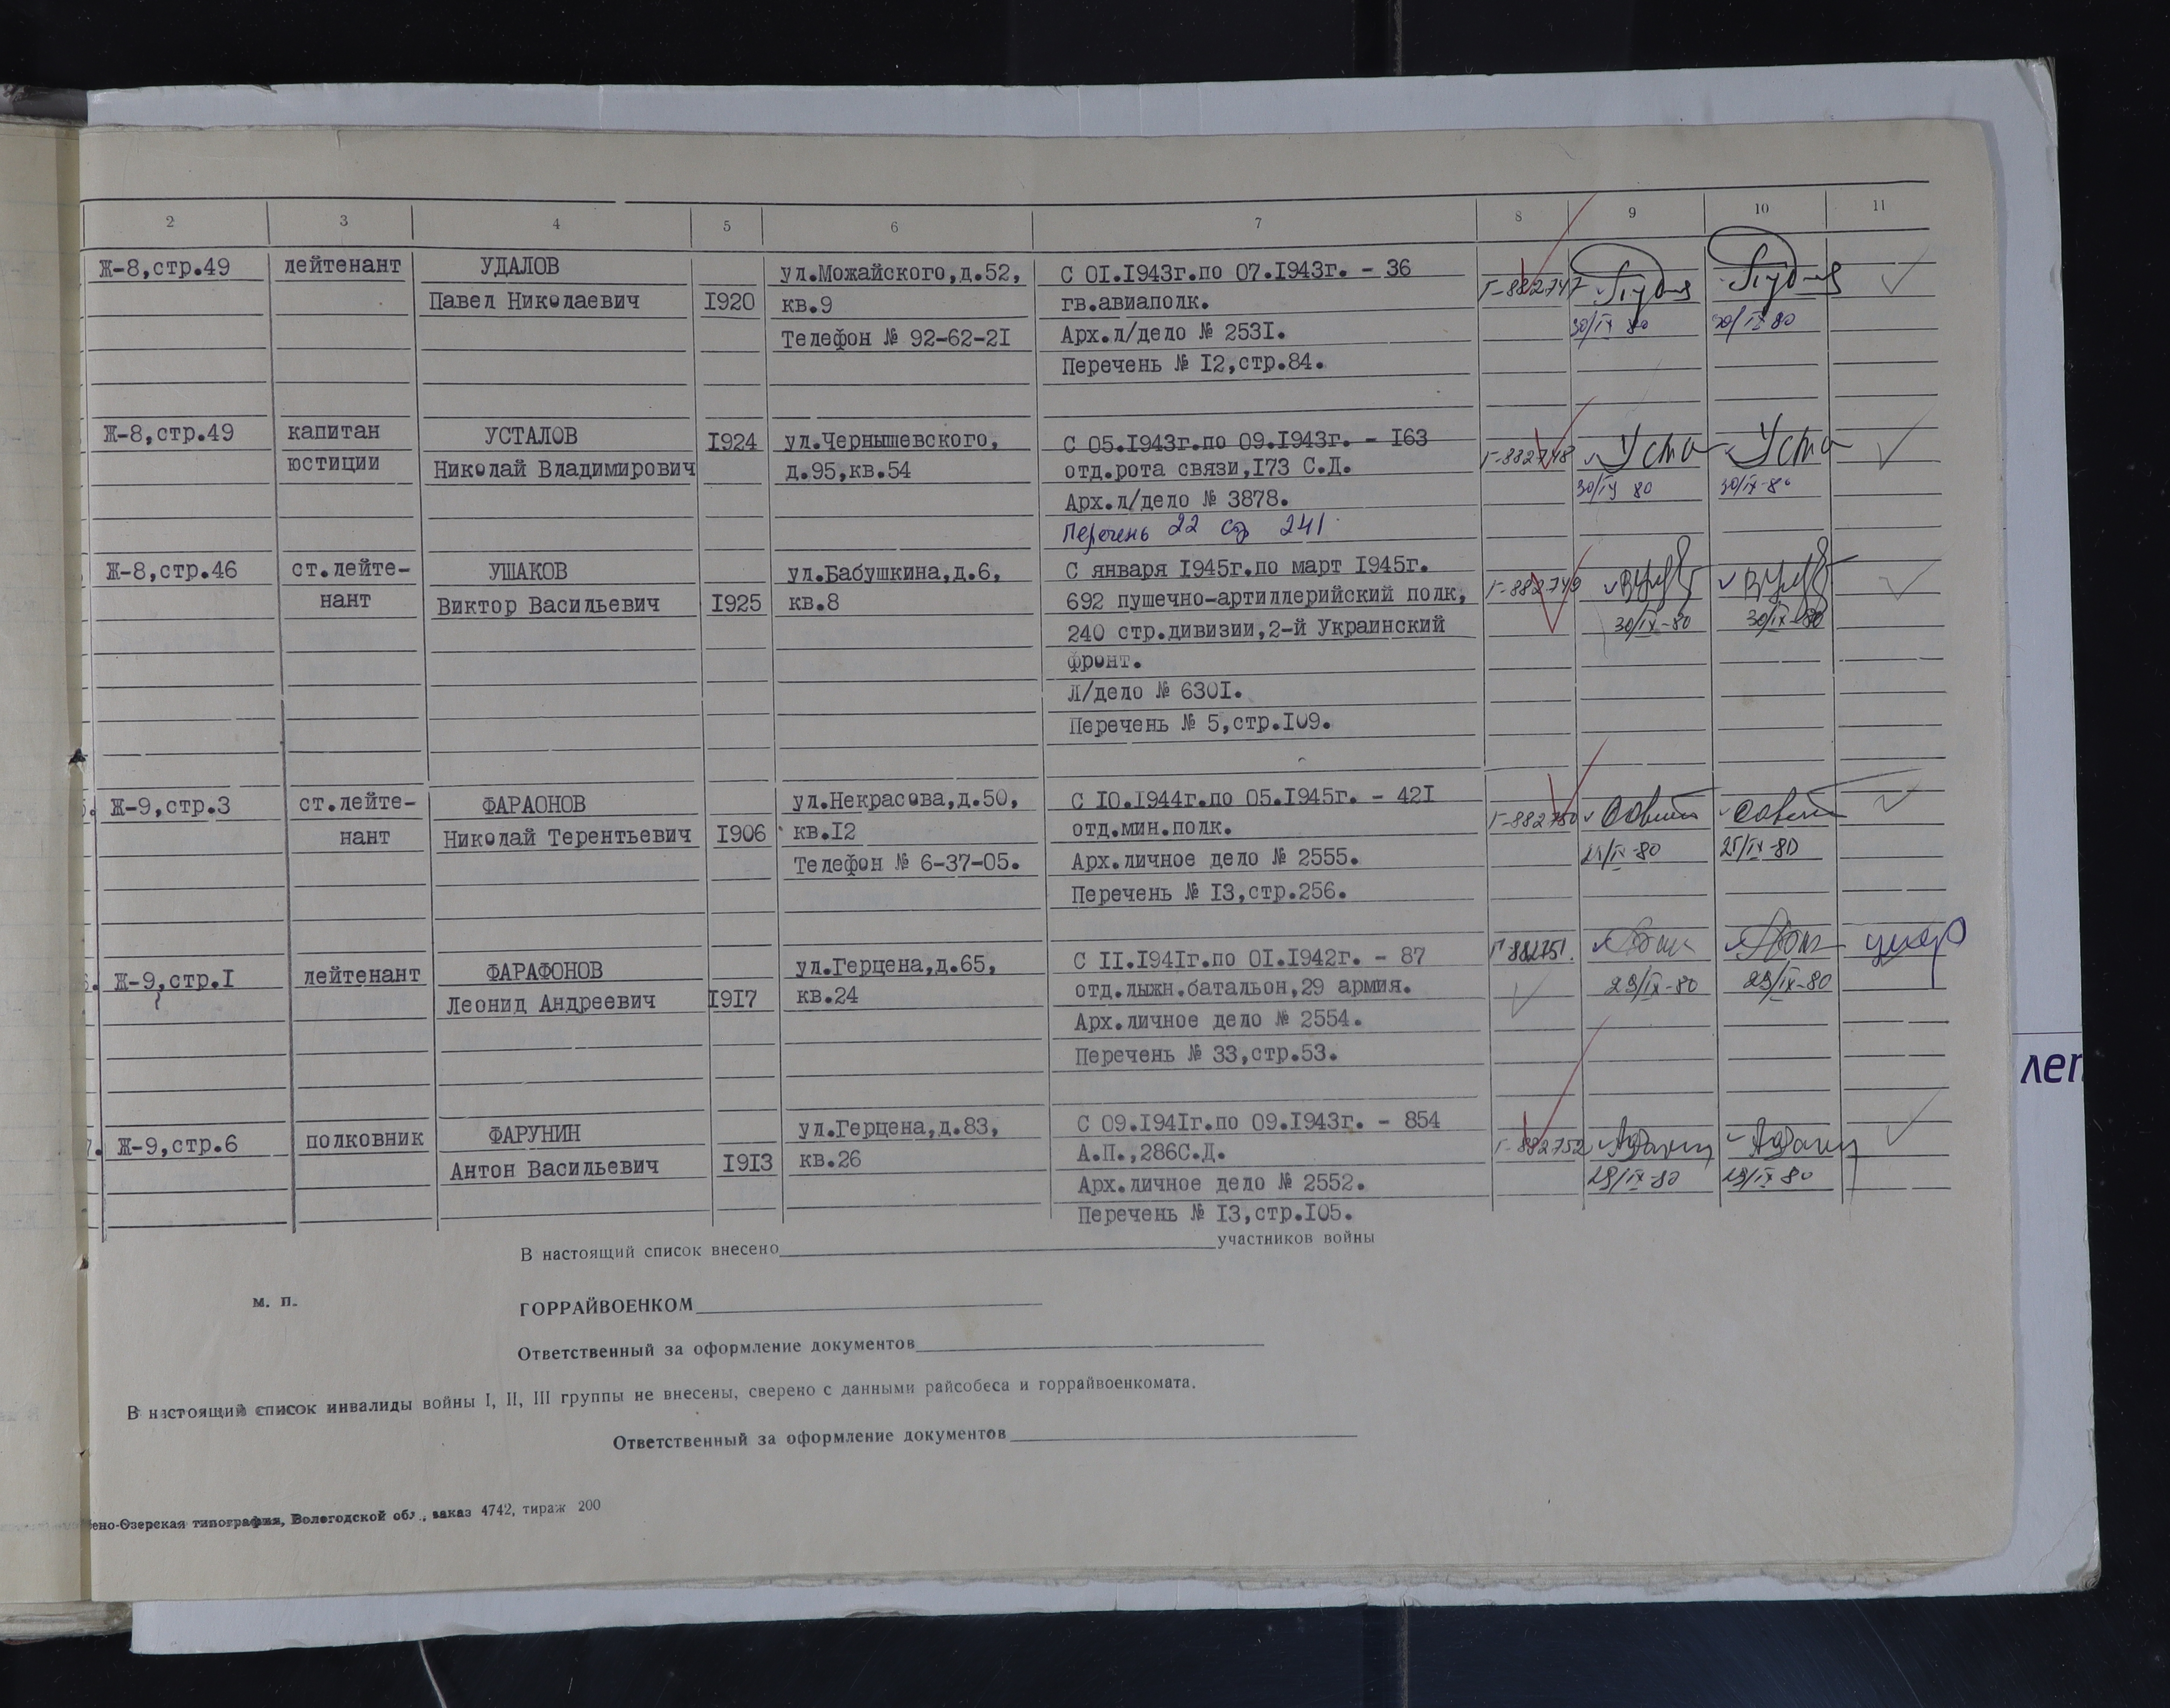 2 3 4 5 6 7 8 9 10 11
Ж-8,стр.49 лейтенант УДАЛОВ ул.Можайского,д.52, С 01.1943г.по 07.1943г. - 36
Павел Николаевич 1920 кв.9 гв.авиаполк. Г-882747
Телефон № 92-62-21 Арх.л/дело № 2531. 30/IX 80 30/IX 80
Перечень № 12,стр.84.
Ж-8,стр.49 капитан УСТАЛОВ 1924 ул.Чернышевского, С 05.1943г.по 09.1943г. - 163
юстиции Николай Владимирович д.95,кв.54 отд.рота связи,173 С.Д. Г-882748 Уста Уста
Арх.л/дело № 3878. 30/IX 80 30/IX-80
Перечень 22 стр 241
Ж-8,стр.46 ст.лейте- УШАКОВ ул.Бабушкина,д.6, С января 1945г.по март 1945г. Г-882749
нант Виктор Васильевич 1925 кв.8 692 пушечно-артиллерийский полк, 30/IX-80 30/IX-80
240 стр.дивизии,2-й Украинский
фронт.
Л/дело № 6301.
Перечень № 5,стр.109.
Ж-9,стр.3 ст.лейте- ФАРАОНОВ ул.Некрасова,д.50, С 10.1944г.по 05.1945г. - 421
нант Николай Терентьевич 1906 кв.12 отд.мин.полк. Г-882750
Телефон № 6-37-05. Арх.личное дело № 2555. 25/IX-80
Перечень № 13,стр.256.
Ж-9,стр.1 лейтенант ФАРАФОНОВ ул.Герцена,д.65, С 11.1941г.по 01.1942г. - 87 Г-882751.
Леонид Андреевич 1917 кв.24 отд.лыжн.батальон,29 армия. 29/IX-80 29/IX-80
Арх.личное дело № 2554.
Перечень № 33,стр.53.
7. Ж-9,стр.6 полковник ФАРУНИН ул.Герцена,д.83, С 09.1941г.по 09.1943г. - 854
Антон Васильевич 1913 кв.26 А.П.,286С.Д. Г-882752
Арх.личное дело № 2552. 29/IX-80 29/IX 80
Перечень № 13,стр.105.
В настоящий список внесено участников войны
м. п. ГОРРАЙВОЕНКОМ
Ответственный за оформление документов
В настоящий список инвалиды войны I, II, III группы не внесены, сверено с данными райсобеса и горрайвоенкомата.
Ответственный за оформление документов
ено-Озерская типография, Вологодской обл., заказ 4742, тираж 200